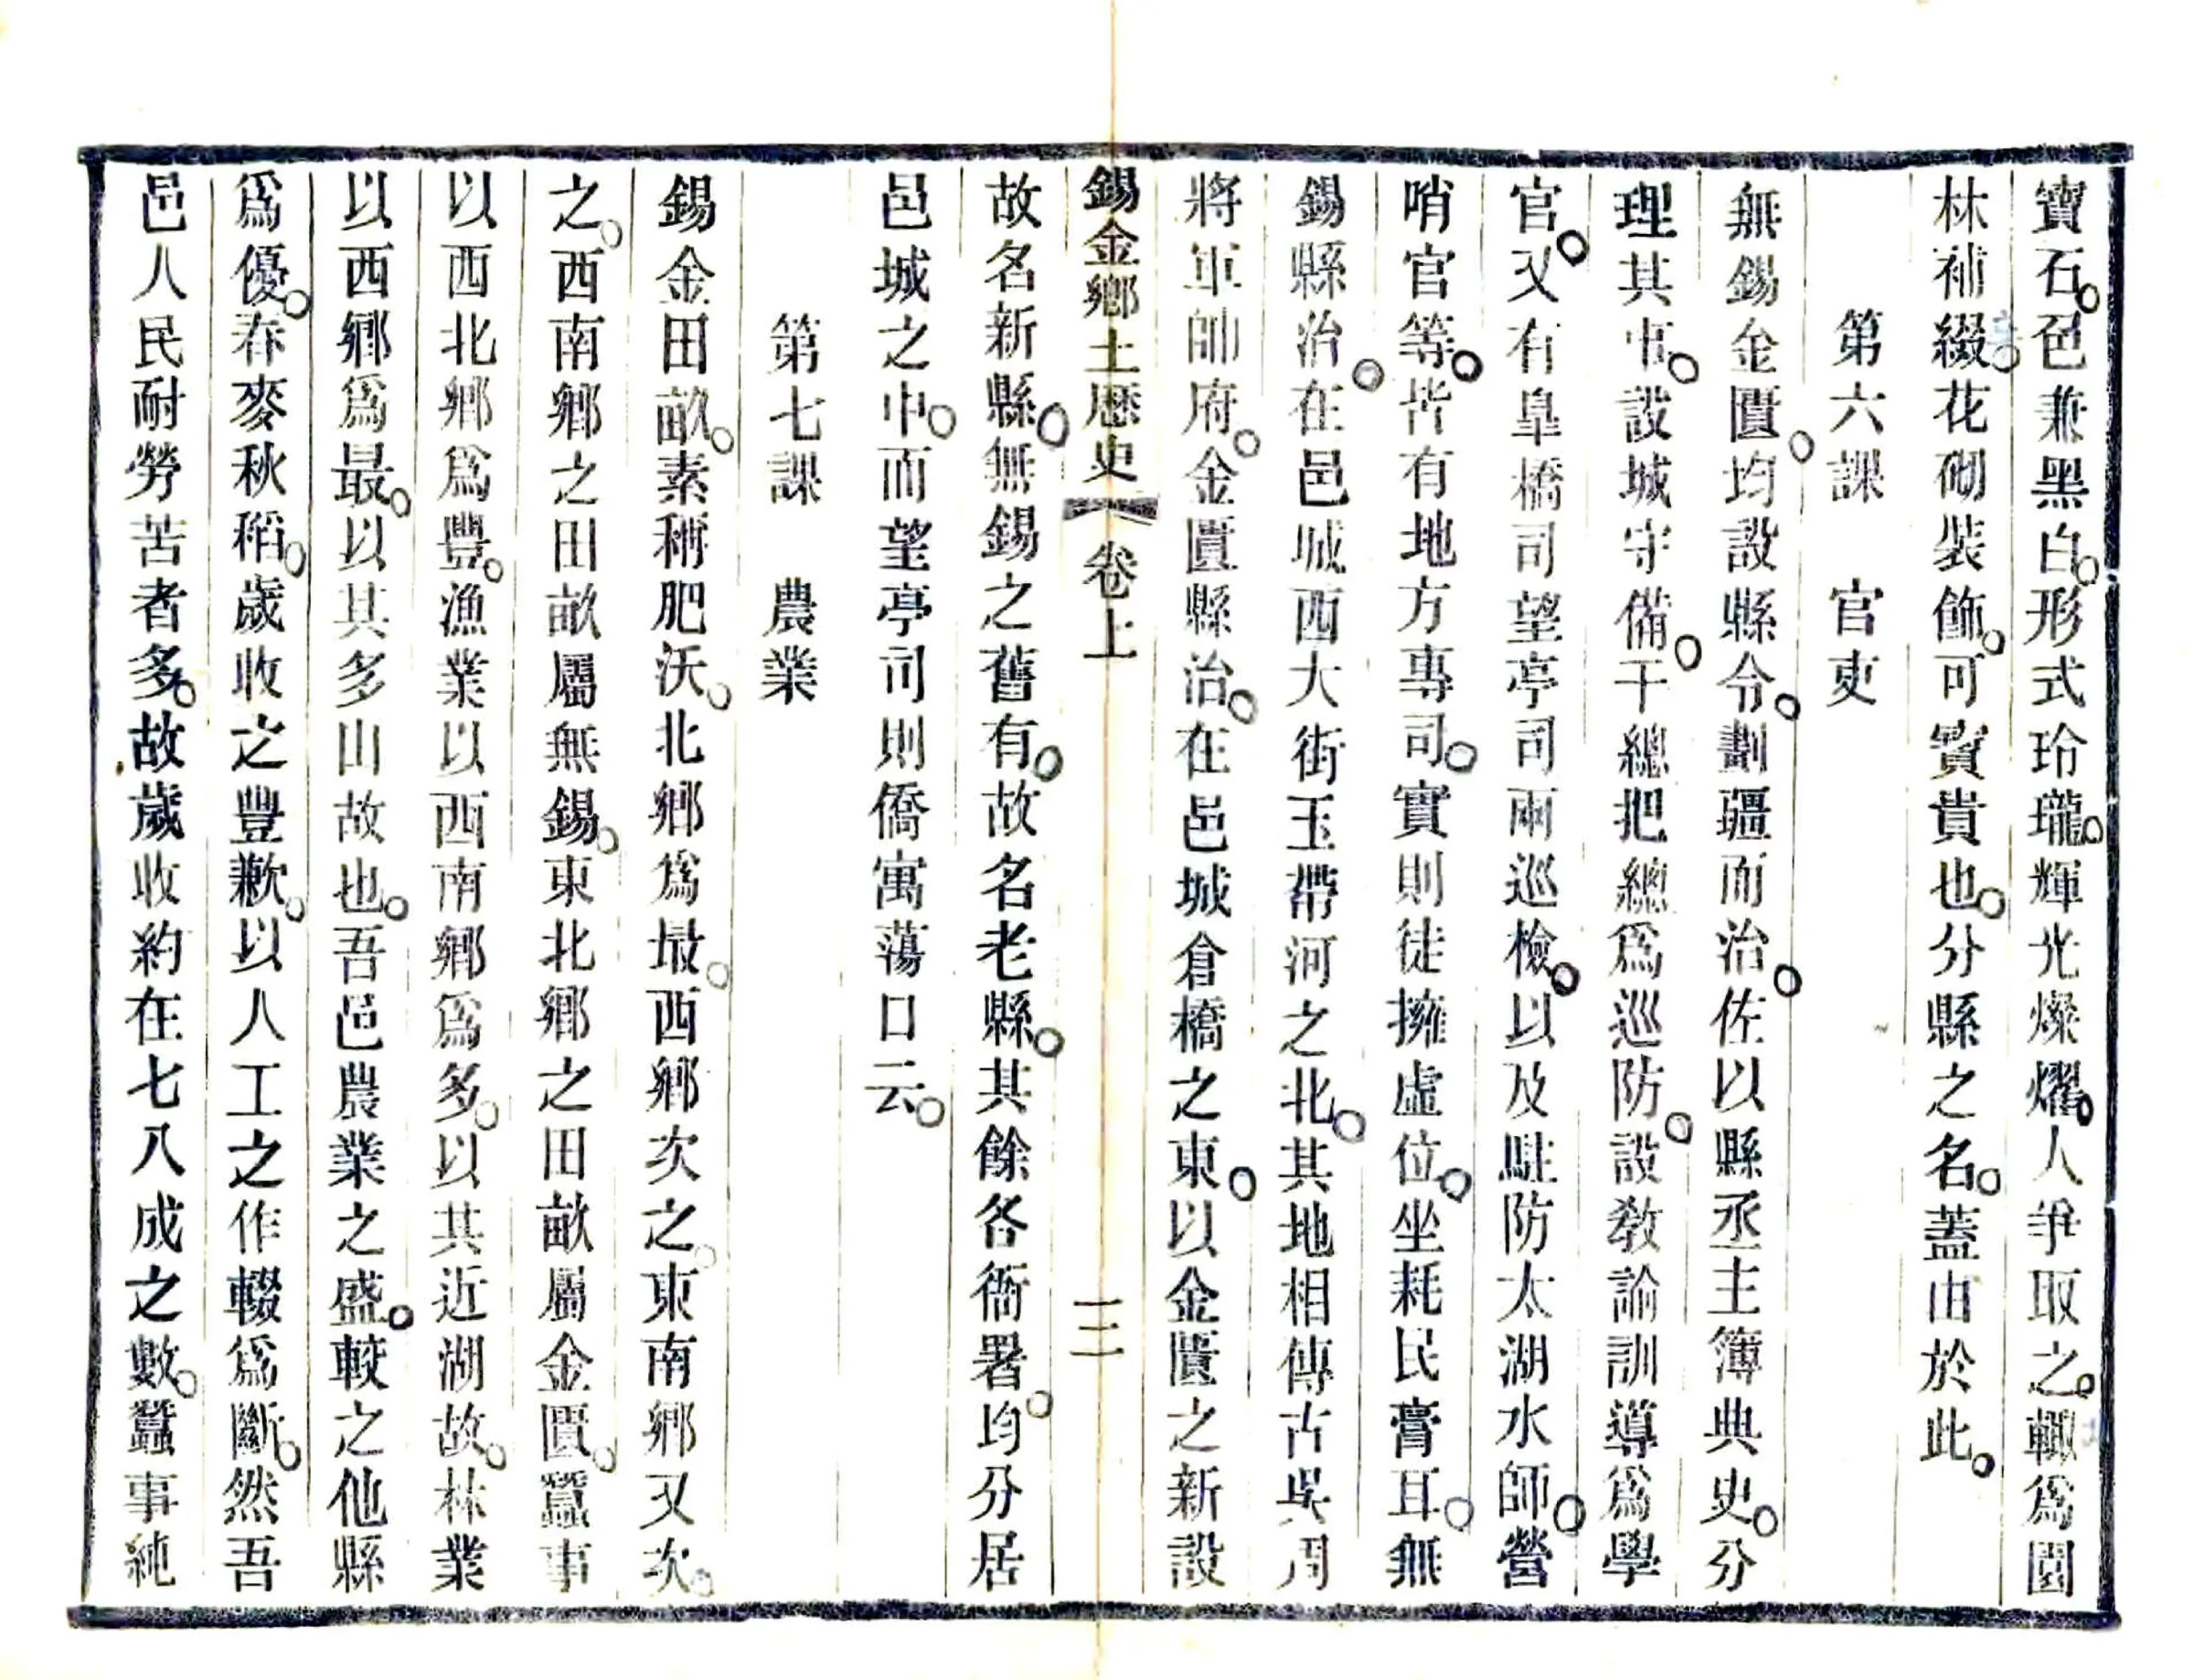 寶石。色兼黑白。形式玲瓏。輝光燦燿。人爭取之。輙爲園
林補綴。花砌裝飾。可寶貴也。分縣之名。蓋由於此。
第六課　官吏
無錫金匱。均設縣令。劃疆而治。佐以縣丞主簿典史。分
理其事。設城守備。千總把總爲巡防。設敎諭訓導爲學
官。又有皐橋司望亭司兩巡檢。以及駐防太湖水師。營
哨官等。皆有地方專司。實則徒擁虛位。坐耗民膏耳。無
錫縣治。在邑城西大街玉帶河之北。其地相傳古吳周
將軍帥府。金匱縣治。在邑城倉橋之東。以金匱之新設
故名新縣。無錫之舊有。故名老縣。其餘各衙署。均分居
邑城之中。而望亭司則僑寓蕩口云。
錫金鄉土歷史　卷上　三
第七課　農業
錫金田畝。素稱肥沃。北鄉爲最。西鄉次之。東南鄉又次
之。西南鄉之田畝屬無錫。東北鄉之田畝屬金匱。蠶事
以西北鄉爲豐。漁業以西南鄉爲多。以其近湖故。林業
以西鄉爲最。以其多山故也。吾邑農業之盛。較之他縣
爲優。春麥秋稻。歲收之豐歉。以人工之作輟爲斷。然吾
邑人民耐勞苦者多。故歲收約在七八成之數。蠶事純